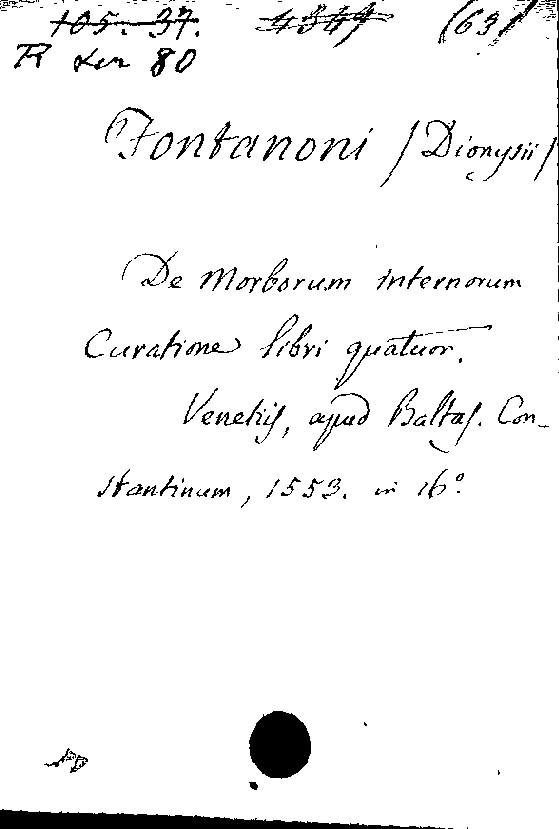 105. 37. 4347 (63)
R 80
Fontanoni (Dionysii)
De Morborum internorum
Curatione libri quatuor.
Venetiis, apud Baltas. Con-
stantinum, 1553. in 16º.